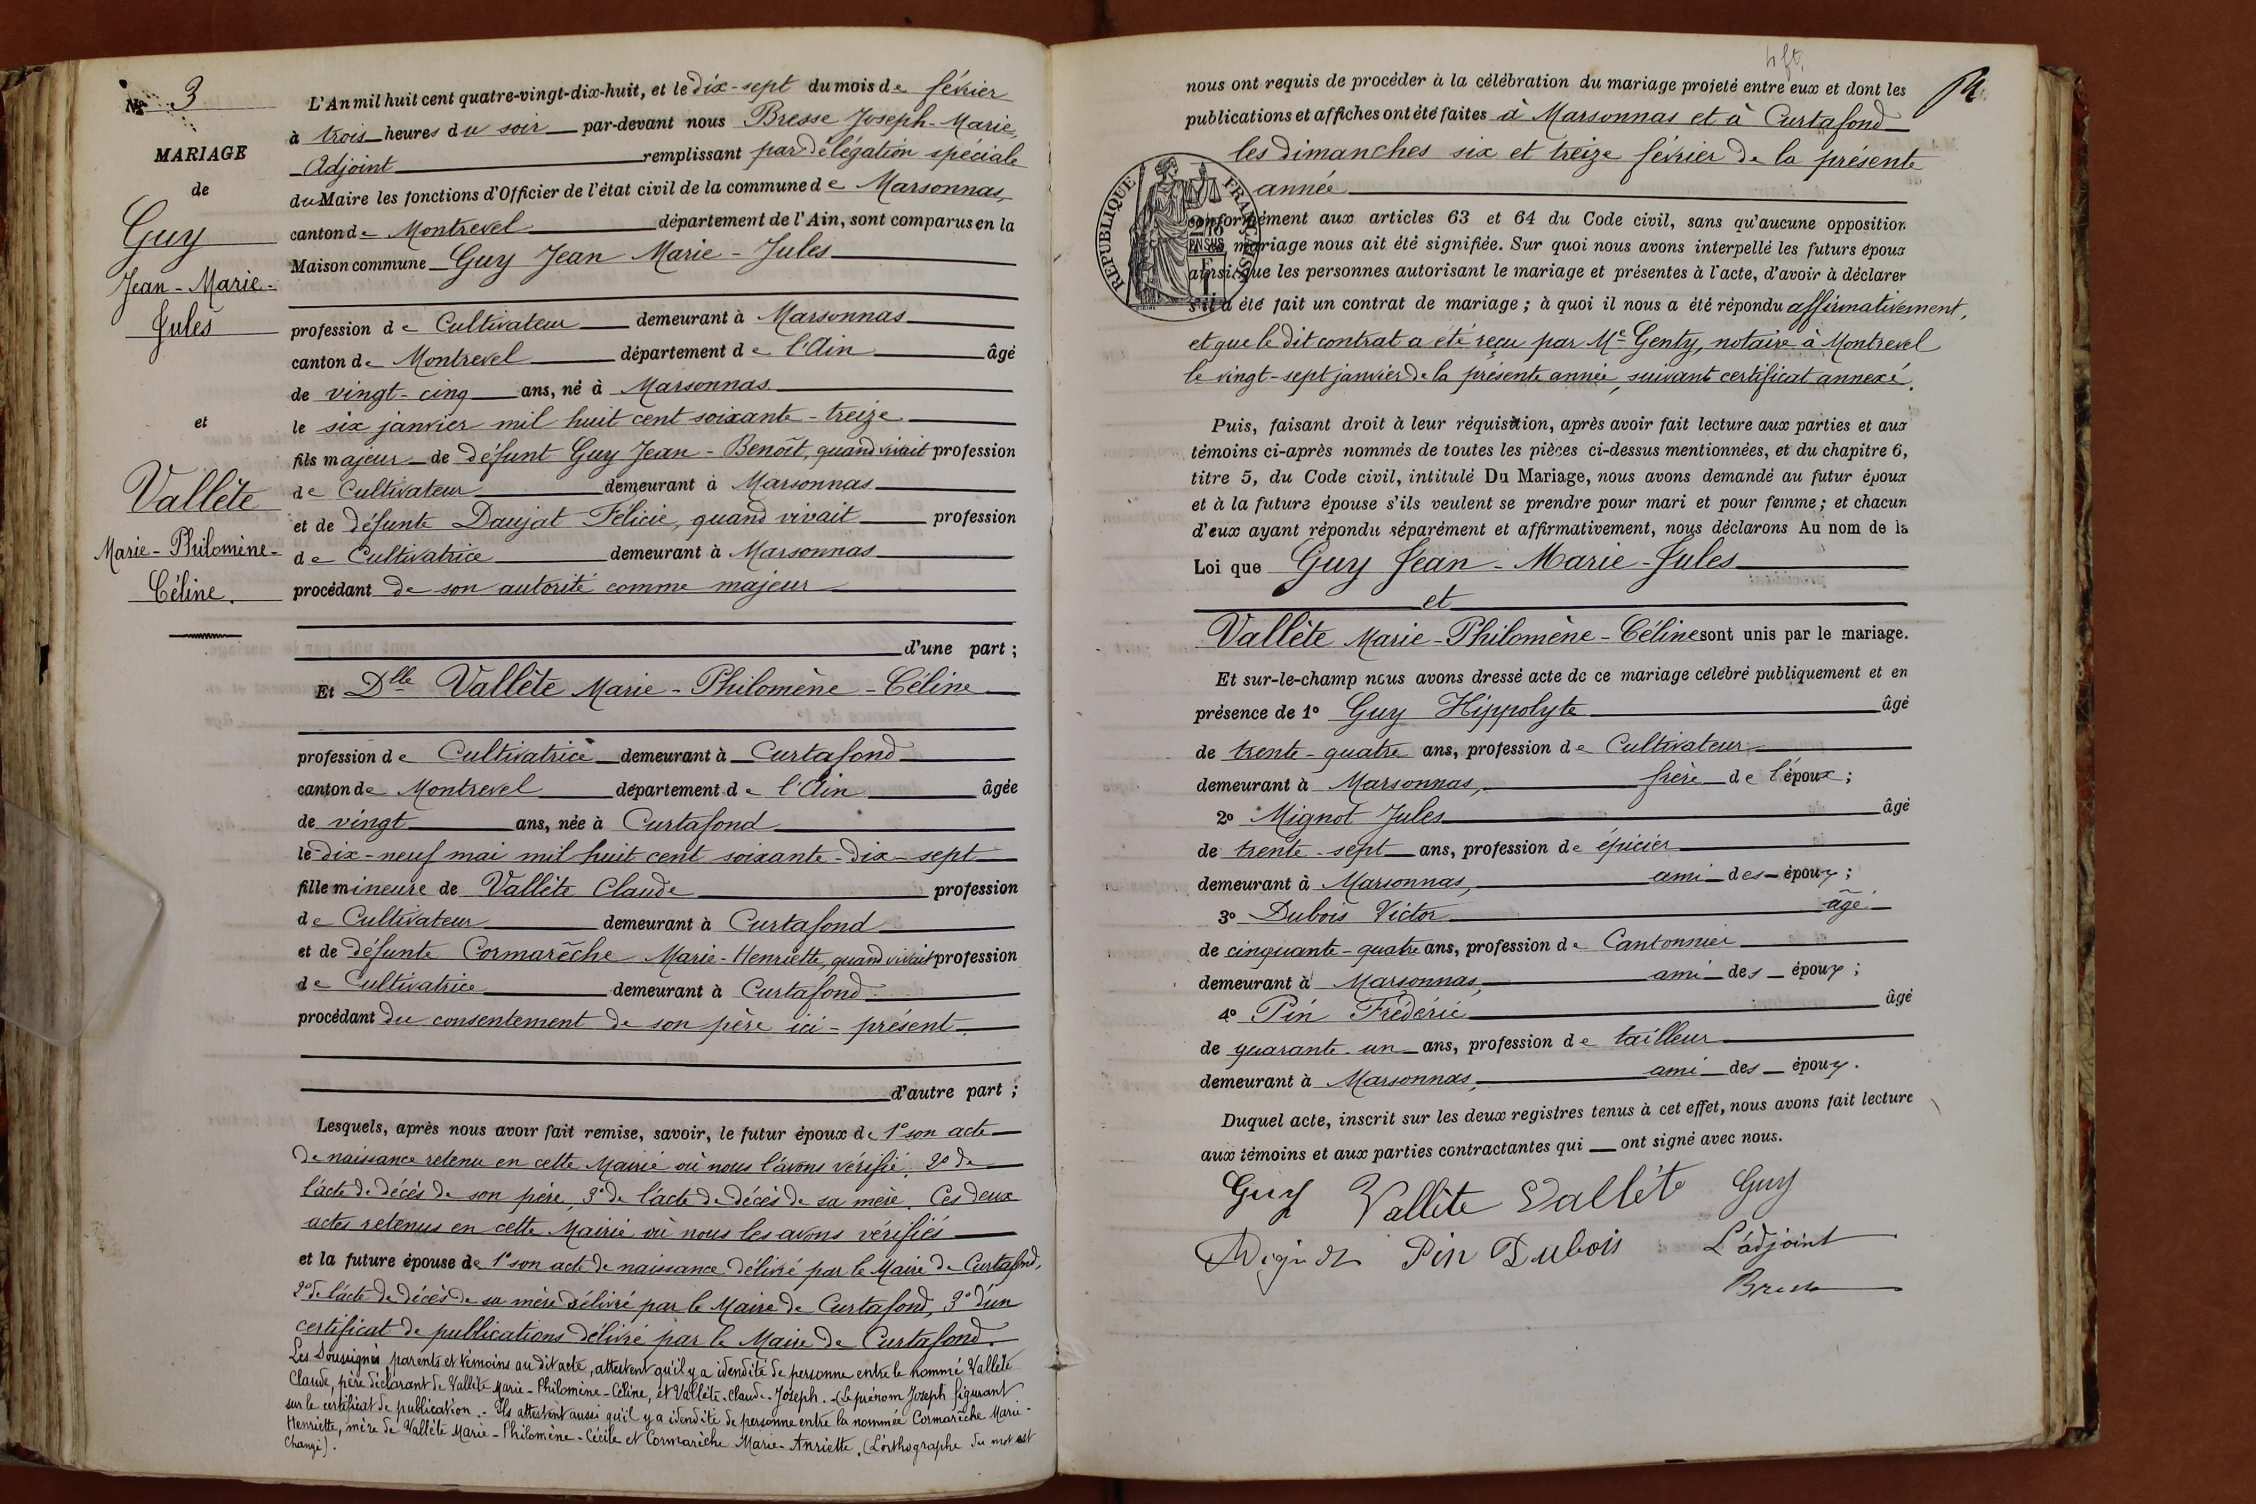 N° 3
MARIAGE
de
Guy
Jean-Marie-
Jules
et
Vallète
Marie-Philomène-
Céline.
L'An mil huit cent quatre-vingt-dix-huit, et le dix-sept du mois de février
à trois heures du soir par-devant nous Bresse Joseph-Marie,
Adjoint remplissant par délégation spéciale
du Maire les fonctions d'Officier de l'état civil de la commune de Marsonnas,
canton de Montrevel département de l'Ain, sont comparus en la
Maison commune Guy Jean Marie-Jules
profession de Cultivateur demeurant à Marsonnas
canton de Montrevel département de l'Ain âgé
de vingt-cinq ans, né à Marsonnas
le six janvier mil huit cent soixante-treize
fils majeur de défunt Guy Jean-Benoît, quand vivait profession
de Cultivateur demeurant à Marsonnas
et de défunte Daujat Félicie, quand vivait profession
de Cultivatrice demeurant à Marsonnas
procédant de son autorité comme majeur
d'une part ;
Et Dlle Vallète Marie-Philomène-Céline
profession de Cultivatrice demeurant à Curtafond
canton de Montrevel département de l'Ain âgée
de vingt ans, née à Curtafond
le dix-neuf mai mil huit cent soixante-dix-sept
fille mineure de Vallète Claude profession
de Cultivateur demeurant à Curtafond
et de défunte Cormarèche Marie-Henriette, quand vivait profession
de Cultivatrice demeurant à Curtafond
procédant du consentement de son père ici-présent.
d'autre part ;
Lesquels, après nous avoir fait remise, savoir, le futur époux de 1° son acte
de naissance retenu en cette Mairie où nous l'avons vérifié. 2° de
l'acte de décès de son père, 3° de l'acte de décès de sa mère. Ces deux
actes retenus en cette Mairie où nous les avons vérifiés
et la future épouse de 1° son acte de naissance délivré par le Maire de Curtafond,
2° de l'acte de décès de sa mère délivré par le Maire de Curtafond, 3° d'un
certificat de publications délivré par le Maire de Curtafond.
Les Soussignés parents et témoins au dit acte, attestent qu'il y a idendité de personne entre le nommé Vallète
Claude, père déclarant de Vallète Marie-Philomène-Céline, et Vallète-Claude-Joseph.-(Le prénom Joseph figurant
sur le certificat de publication.- Ils attestent aussi qu'il y a idendité de personne entre la nommée Cormarèche Marie-
Henriette, mère de Vallète Marie-Philomène-Cécile et Cormarèche Marie-Anriette. (L'orthographe du mot est
changé).
nous ont requis de procéder à la célébration du mariage projeté entre eux et dont les
publications et affiches ont été faites à Marsonnas et à Curtafond
les dimanches six et treize février de la présente
année
REPUBLIQUE FRANÇAISE
conformément aux articles 63 et 64 du Code civil, sans qu'aucune opposition
mariage nous ait été signifiée. Sur quoi nous avons interpellé les futurs époux
ainsi que les personnes autorisant le mariage et présentes à l'acte, d'avoir à déclarer
s'il a été fait un contrat de mariage ; à quoi il nous a été répondu affirmativement,
et que le dit contrat a été reçu par Me Genty, notaire à Montrevel
le vingt-sept janvier de la présente année, suivant certificat annexé.
Puis, faisant droit à leur réquisition, après avoir fait lecture aux parties et aux
témoins ci-après nommés de toutes les pièces ci-dessus mentionnées, et du chapitre 6,
titre 5, du Code civil, intitulé Du Mariage, nous avons demandé au futur époux
et à la future épouse s'ils veulent se prendre pour mari et pour femme ; et chacun
d'eux ayant répondu séparément et affirmativement, nous déclarons Au nom de la
Loi que Guy Jean-Marie-Jules
et
Vallète Marie-Philomène-Céline sont unis par le mariage.
Et sur-le-champ nous avons dressé acte de ce mariage célébré publiquement et en
présence de 1° Guy Hippolyte âgé
de trente-quatre ans, profession de Cultivateur
demeurant à Marsonnas, frère de l'époux ;
2° Mignot Jules âgé
de trente-sept ans, profession de épicier
demeurant à Marsonnas, ami des époux ;
3° Dubois Victor âgé
de cinquante-quatre ans, profession de Cantonnier
demeurant à Marsonnas, ami des époux ;
4° Pin Frédéric âgé
de quarante-un ans, profession de tailleur
demeurant à Marsonnas, ami des époux.
Duquel acte, inscrit sur les deux registres tenus à cet effet, nous avons fait lecture
aux témoins et aux parties contractantes qui ont signé avec nous.
Guy Vallète Vallète Guy
Mignot Pin Dubois L'adjoint
Bresse